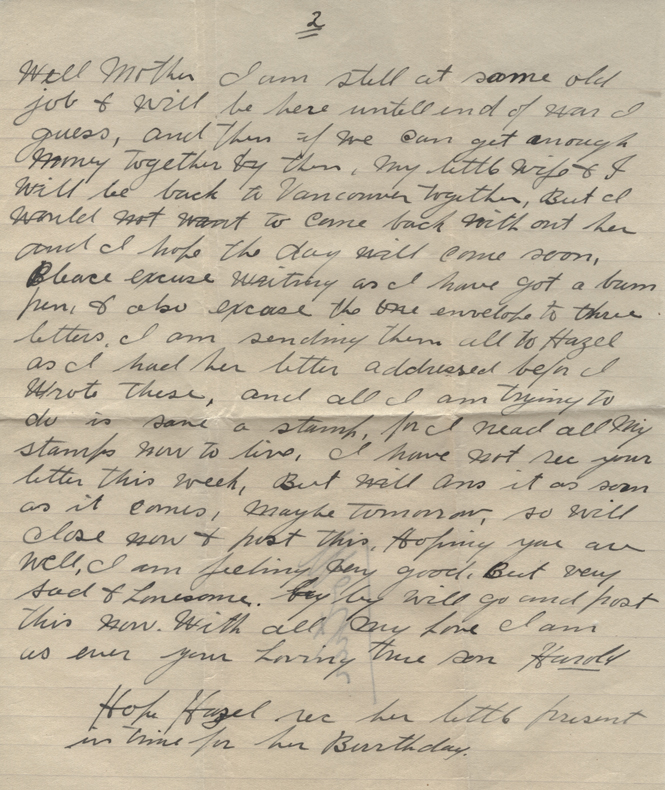 2
Well Mother I am still at same old
job & will be here untell end of war I
guess, and then if we can get enough
Money together by then, My little wife & I
will be back to Vancouver together, But I
would not want to come back with out her
and I hope the day will come soon,
Please excuse writing as I have got a bum
pen, & also excuse the one envelope to three
letters, I am sending them all to Hazel
as I had her letter addressed befor I
wrote these, and all I am trying to
do is save a stamp, for I need all My
stamps now to live, I have not rec your
letter this week, But will ans it as soon
as it comes, maybe tomorrow, so will
close now & post this, Hoping you are
well, I am feeling very good. But very
sad & Lonesome. by will go and post
this now. With all My Love I am
as ever your Loving true son Harold
Hope Hazel rec her little present
in time for her Birrthday.